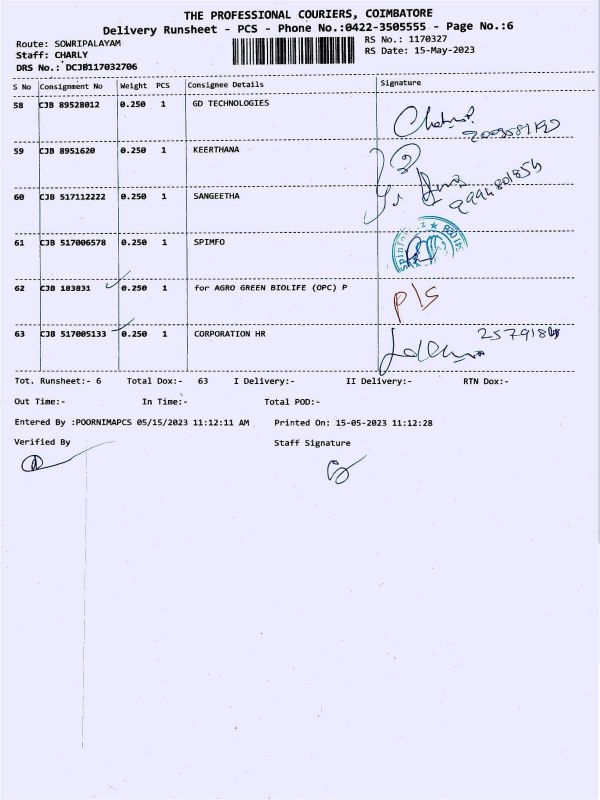 THE PROFESSIONAL COURIERS, COIMBATORE
Delivery Runsheet - PCS - Phone No.:0422-3505555 - Page No.:6
Route: SOWRIPALAYAM RS No.: 1170327
Staff: CHARLY RS Date: 15-May-2023
DRS No.: DCJB117032706
S No Consignment No Weight PCS Consignee Details Signature
58 CJB 89528012 0.250 1 GD TECHNOLOGIES
59 CJB 8951620 0.250 1 KEERTHANA
60 CJB 517112222 0.250 1 SANGEETHA
61 CJB 517006578 0.250 1 SPIMFO
62 CJB 183831 0.250 1 for AGRO GREEN BIOLIFE (OPC) P P/S
63 CJB 517005133 0.250 1 CORPORATION HR
Tot. Runsheet:- 6 Total Dox:- 63 I Delivery:- II Delivery:- RTN Dox:-
Out Time:- In Time:- Total POD:-
Entered By :POORNIMAPCS 05/15/2023 11:12:11 AM Printed On: 15-05-2023 11:12:28
Verified By Staff Signature